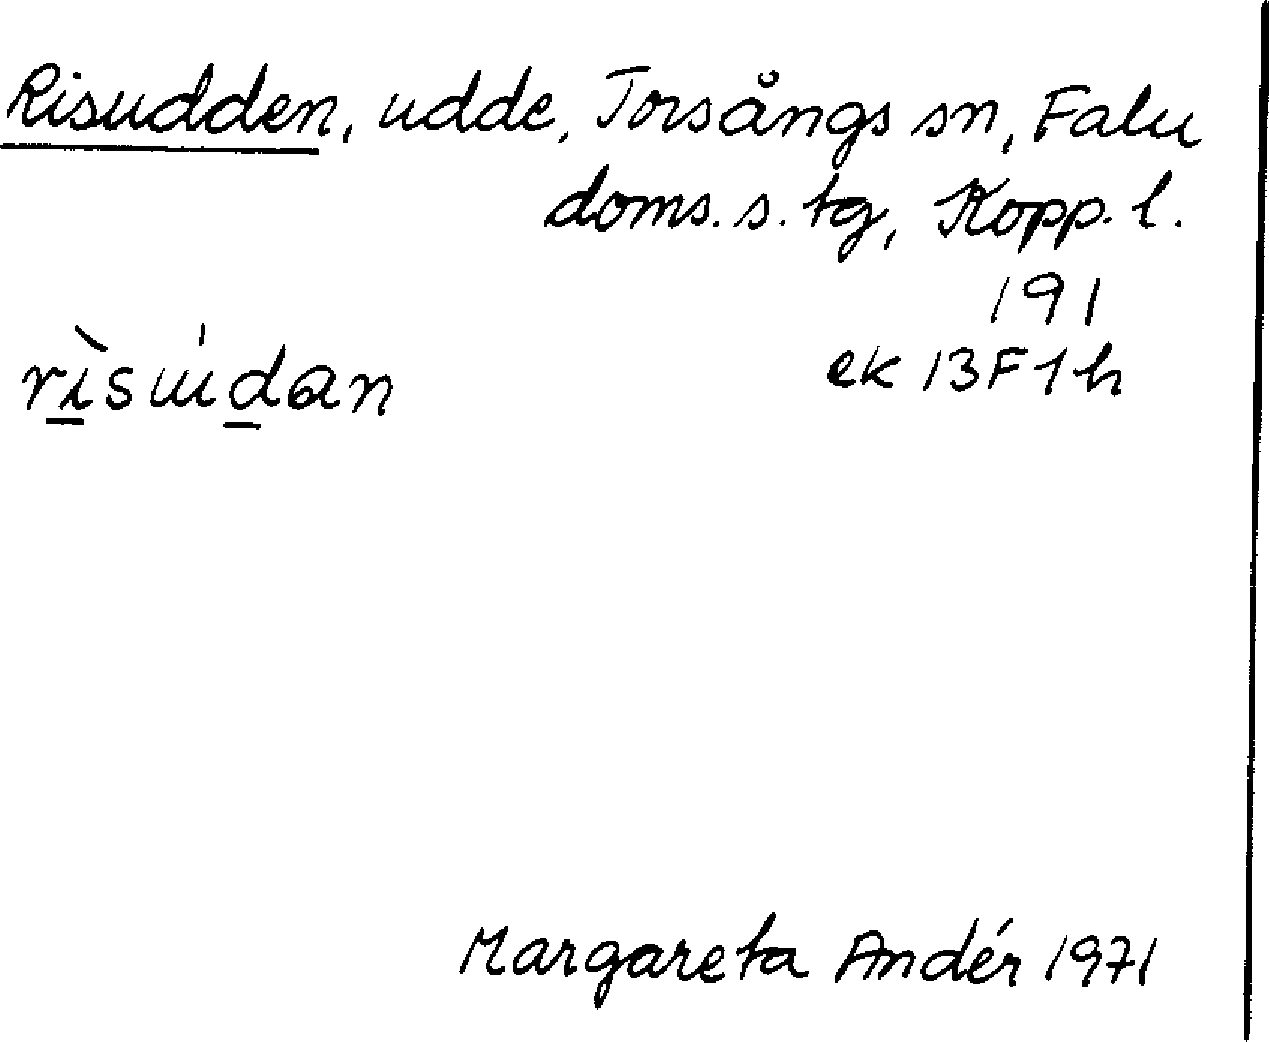 Risudden, udde, Torsångs sn, Falu
doms. s. tg, Kopp. l.
191
ek 13F1h
Margareta Andér 1971